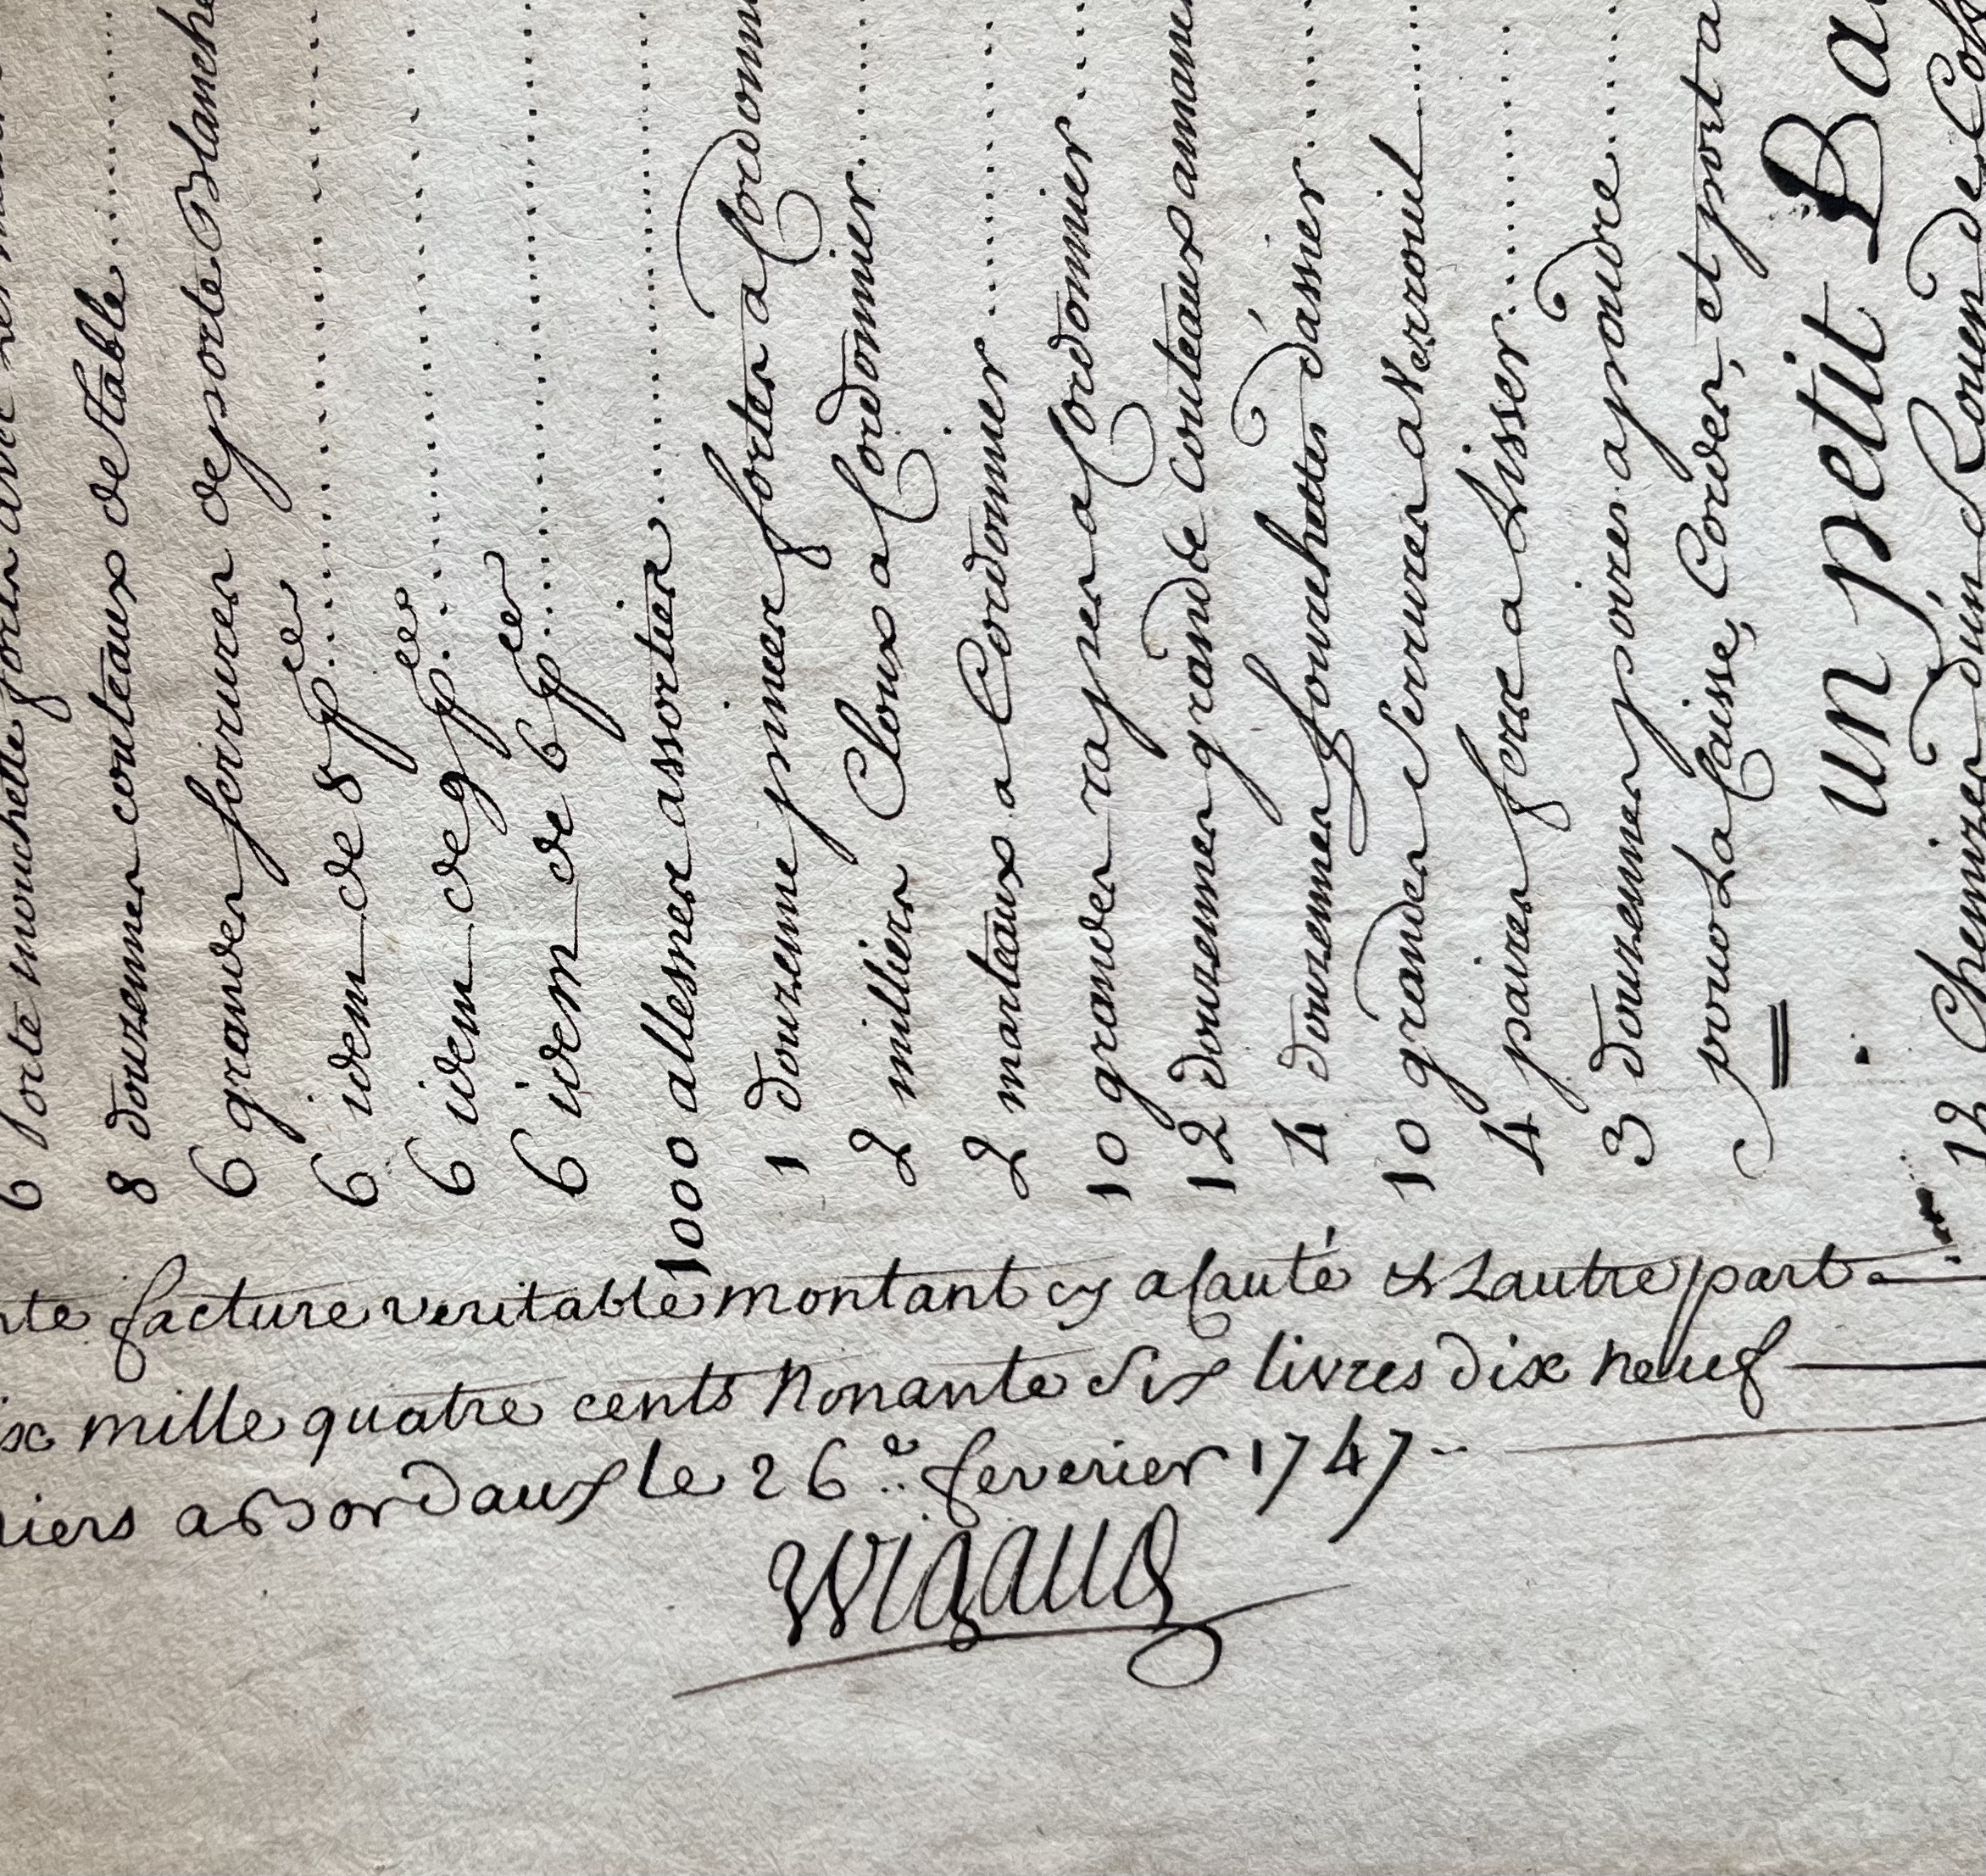 6 porte mouchette
8 douzennes couteaux de table
6 grandes ferrures de porte Blanche
6 idem de 8 pces
6 idem de 9 pces
6 idem de 6 pces
1000 allesnes assorties
1 douzenne pinces fortes a Cordonn
2 milliers Cloux a Cordonnier
2 marteaux a Cordonnier
10 grandes rapes a Cordonnier
12 douzennes grande couteaux amanc
4 douzennes fourchettes d'assier
10 grandes Serrures a Verrouil
4 paires fers a Lisser
3 douzennes poires a poudre
pour La Caisse, Cordes, et port a
un petit Ba
12 Chemizes d'un Rouen de Cof
nte facture veritable montant cy a Cauté & Lautre part
ix mille quatre cents Nonante Six livres dix neuf
niers a Bordaux le 26e. fevrier 1747